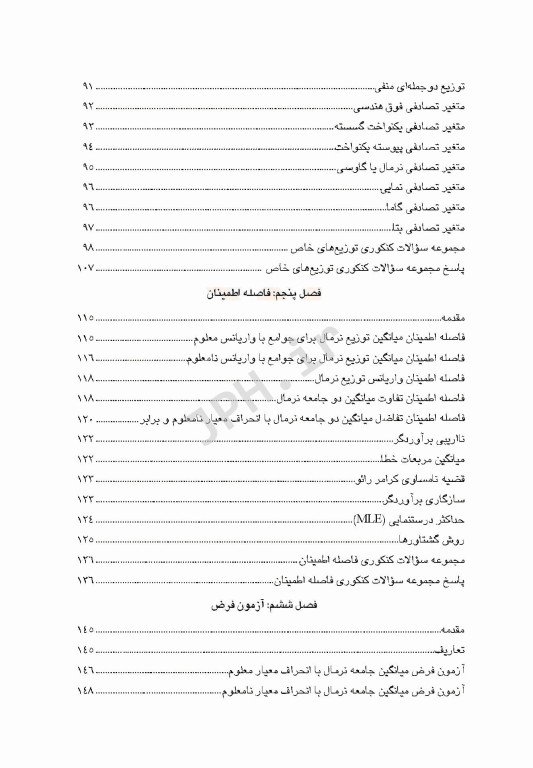 توزیع دوجمله‌ای منفی ۹۱
متغیر تصادفی فوق هندسی ۹۲
متغیر تصادفی یکنواخت گسسته ۹۳
متغیر تصادفی پیوسته یکنواخت ۹۴
متغیر تصادفی نرمال یا گاوسی ۹۵
متغیر تصادفی نمایی ۹۶
متغیر تصادفی گاما ۹۶
متغیر تصادفی بتا ۹۷
مجموعه سؤالات کنکوری توزیع‌های خاص ۹۸
پاسخ مجموعه سؤالات کنکوری توزیع‌های خاص ۱۰۷
فصل پنجم: فاصله اطمینان
مقدمه ۱۱۵
فاصله اطمینان میانگین توزیع نرمال برای جوامع با واریانس معلوم ۱۱۵
فاصله اطمینان میانگین توزیع نرمال برای جوامع با واریانس نامعلوم ۱۱۶
فاصله اطمینان واریانس توزیع نرمال ۱۱۸
فاصله اطمینان تفاوت میانگین دو جامعه نرمال ۱۱۸
فاصله اطمینان تفاضل میانگین دو جامعه نرمال با انحراف معیار نامعلوم و برابر ۱۲۰
نااریبی برآوردگر ۱۲۲
میانگین مربعات خطا ۱۲۲
قضیه نامساوی کرامر رائو ۱۲۳
سازگاری برآوردگر ۱۲۳
حداکثر درستنمایی (MLE) ۱۲۴
روش گشتاورها ۱۲۵
مجموعه سؤالات کنکوری فاصله اطمینان ۱۲۶
پاسخ مجموعه سؤالات کنکوری فاصله اطمینان ۱۳۶
فصل ششم: آزمون فرض
مقدمه ۱۴۵
تعاریف ۱۴۵
آزمون فرض میانگین جامعه نرمال با انحراف معیار معلوم ۱۴۶
آزمون فرض میانگین جامعه نرمال با انحراف معیار نامعلوم ۱۴۸
JPH.ir